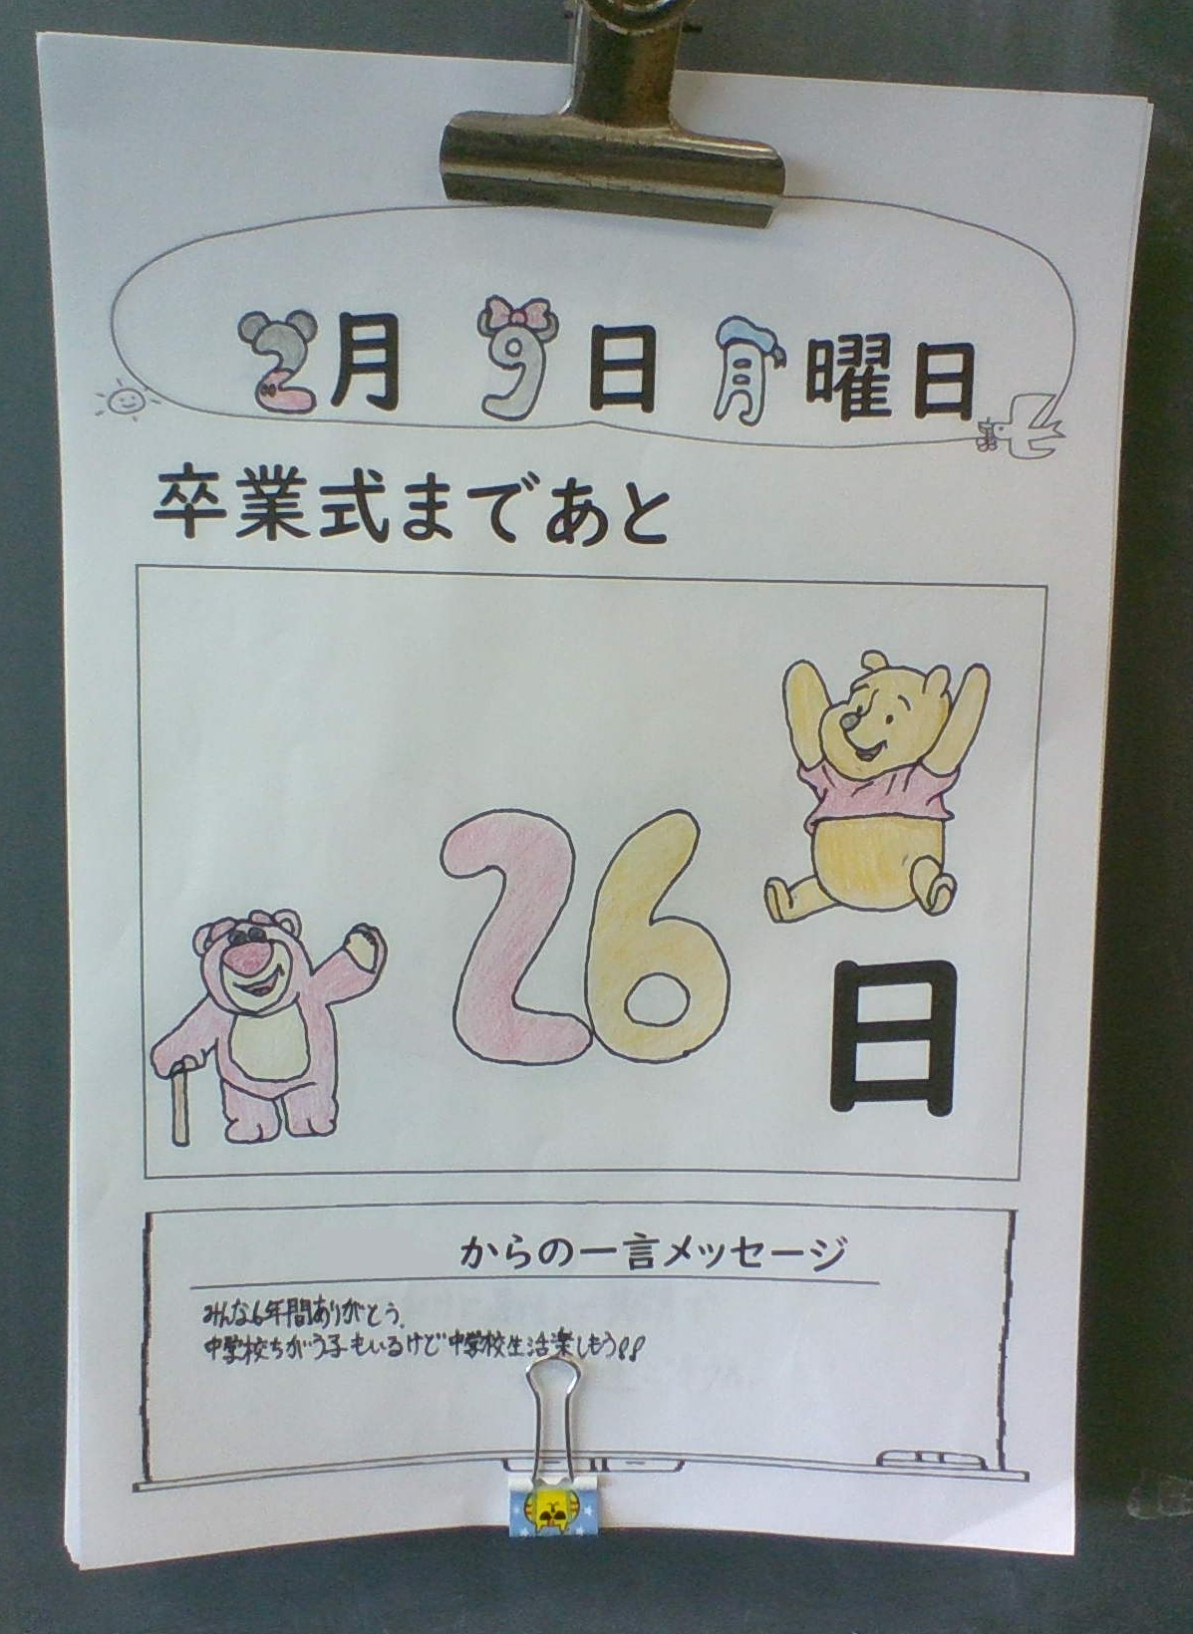 2月 9日 月曜日
卒業式まであと
26日
からの一言メッセージ
みんな6年間ありがとう。
中学校ちがう子もいるけど中学校生活楽しもう!!